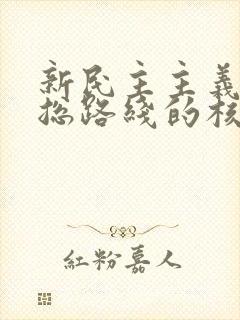 新民主主義
總路綫的核
紅粉嘉人